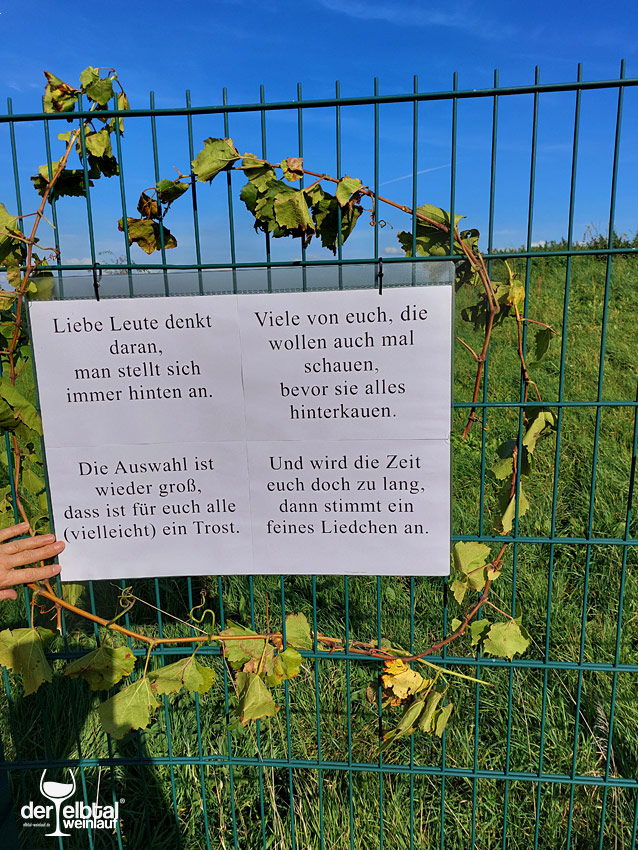 Liebe Leute denkt
daran,
man stellt sich
immer hinten an.
Viele von euch, die
wollen auch mal
schauen,
bevor sie alles
hinterkauen.
Die Auswahl ist
wieder groß,
dass ist für euch alle
(vielleicht) ein Trost.
Und wird die Zeit
euch doch zu lang,
dann stimmt ein
feines Liedchen an.
der elbtal®
elbtal-weinlauf.de
weinlauf